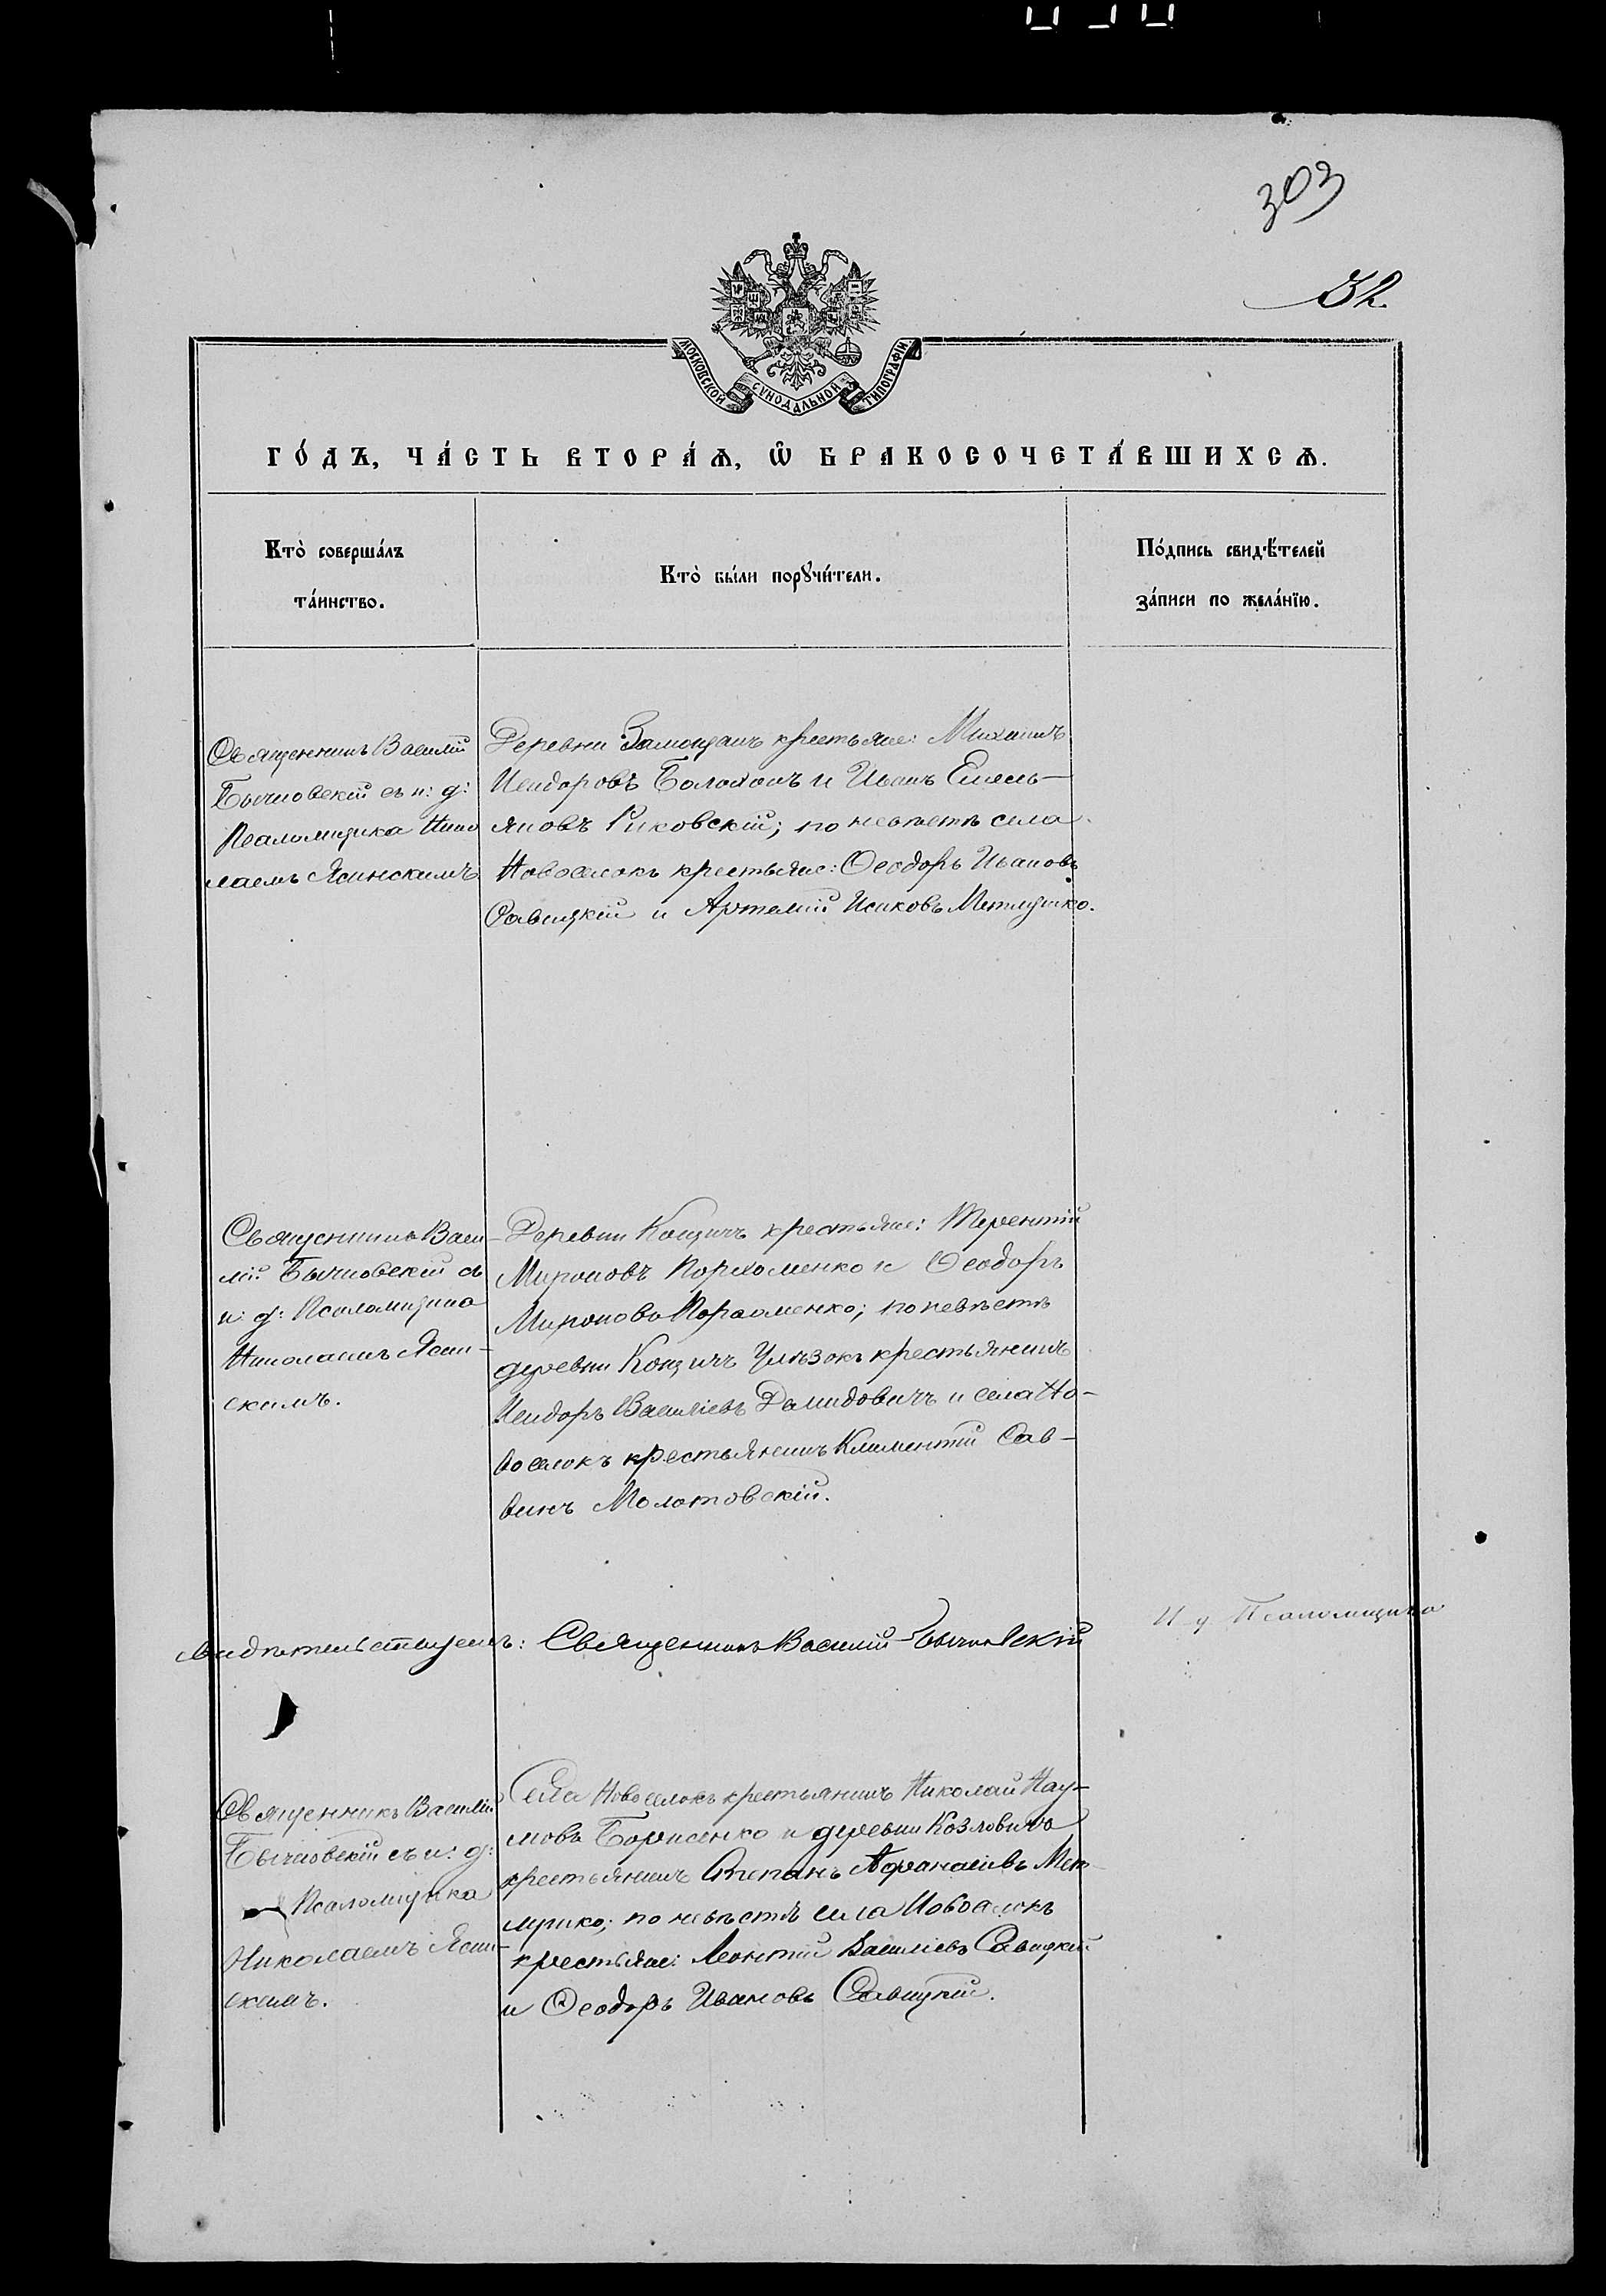 303
32.
МОСКОВСКОЙ СУНОДАЛЬНОЙ ТИПОГРАФІИ
ГО́ДЪ, ЧА́СТЬ ВТОРА́Ѧ, Ѡ҆ БРАКОСОЧЕТА́ВШИХСѦ.
Кто̀ соверша́лъ
та́инство.
Кто̀ бы́ли порꙋчи́тели.
По́дпись свидѣ́телей
за́писи по жела́нїю.
Священникъ Василій
Бычковскій съ и: д:
Псаломщика Нико
лаемъ Ясинскимъ
Деревни крестьяне: Михаилъ
Исидоровъ и Иванъ Емель-
яновъ Риковскій; по невѣстѣ села
Новоселокъ крестьяне: Ѳеодоръ Ивановъ
Савицкій и Артемій Исаковъ
Священникъ Васи-
лій Бычковскій съ
и: д: Псаломщика
Николаемъ Ясин-
скимъ.
Деревни Концичъ крестьяне: Терентій
Мироновъ Порхоменко и Ѳеодоръ
Мироновъ Порхоменко; по невѣстѣ
деревни Концичъ крестьянинъ
Исидоръ Василіевъ Демидовичъ и села Но-
воселокъ крестьянинъ Климентій Сав-
винъ Молотовскій.
Свидѣтельствуемъ: Священникъ Василій Бычковскій
И д Псаломщика
Священникъ Василій
Бычковскій съ и: д:
Псаломщика
Николаемъ Ясин-
скимъ.
Села Новоселокъ крестьянинъ Николай Нау-
мовъ Борисенко и деревни Козловичъ
крестьянинъ Степанъ Аѳанасіевъ
по невѣстѣ села Новоселокъ
крестьяне: Леонтій Василіевъ Савицкій
и Ѳеодоръ Ивановъ Савицкій.